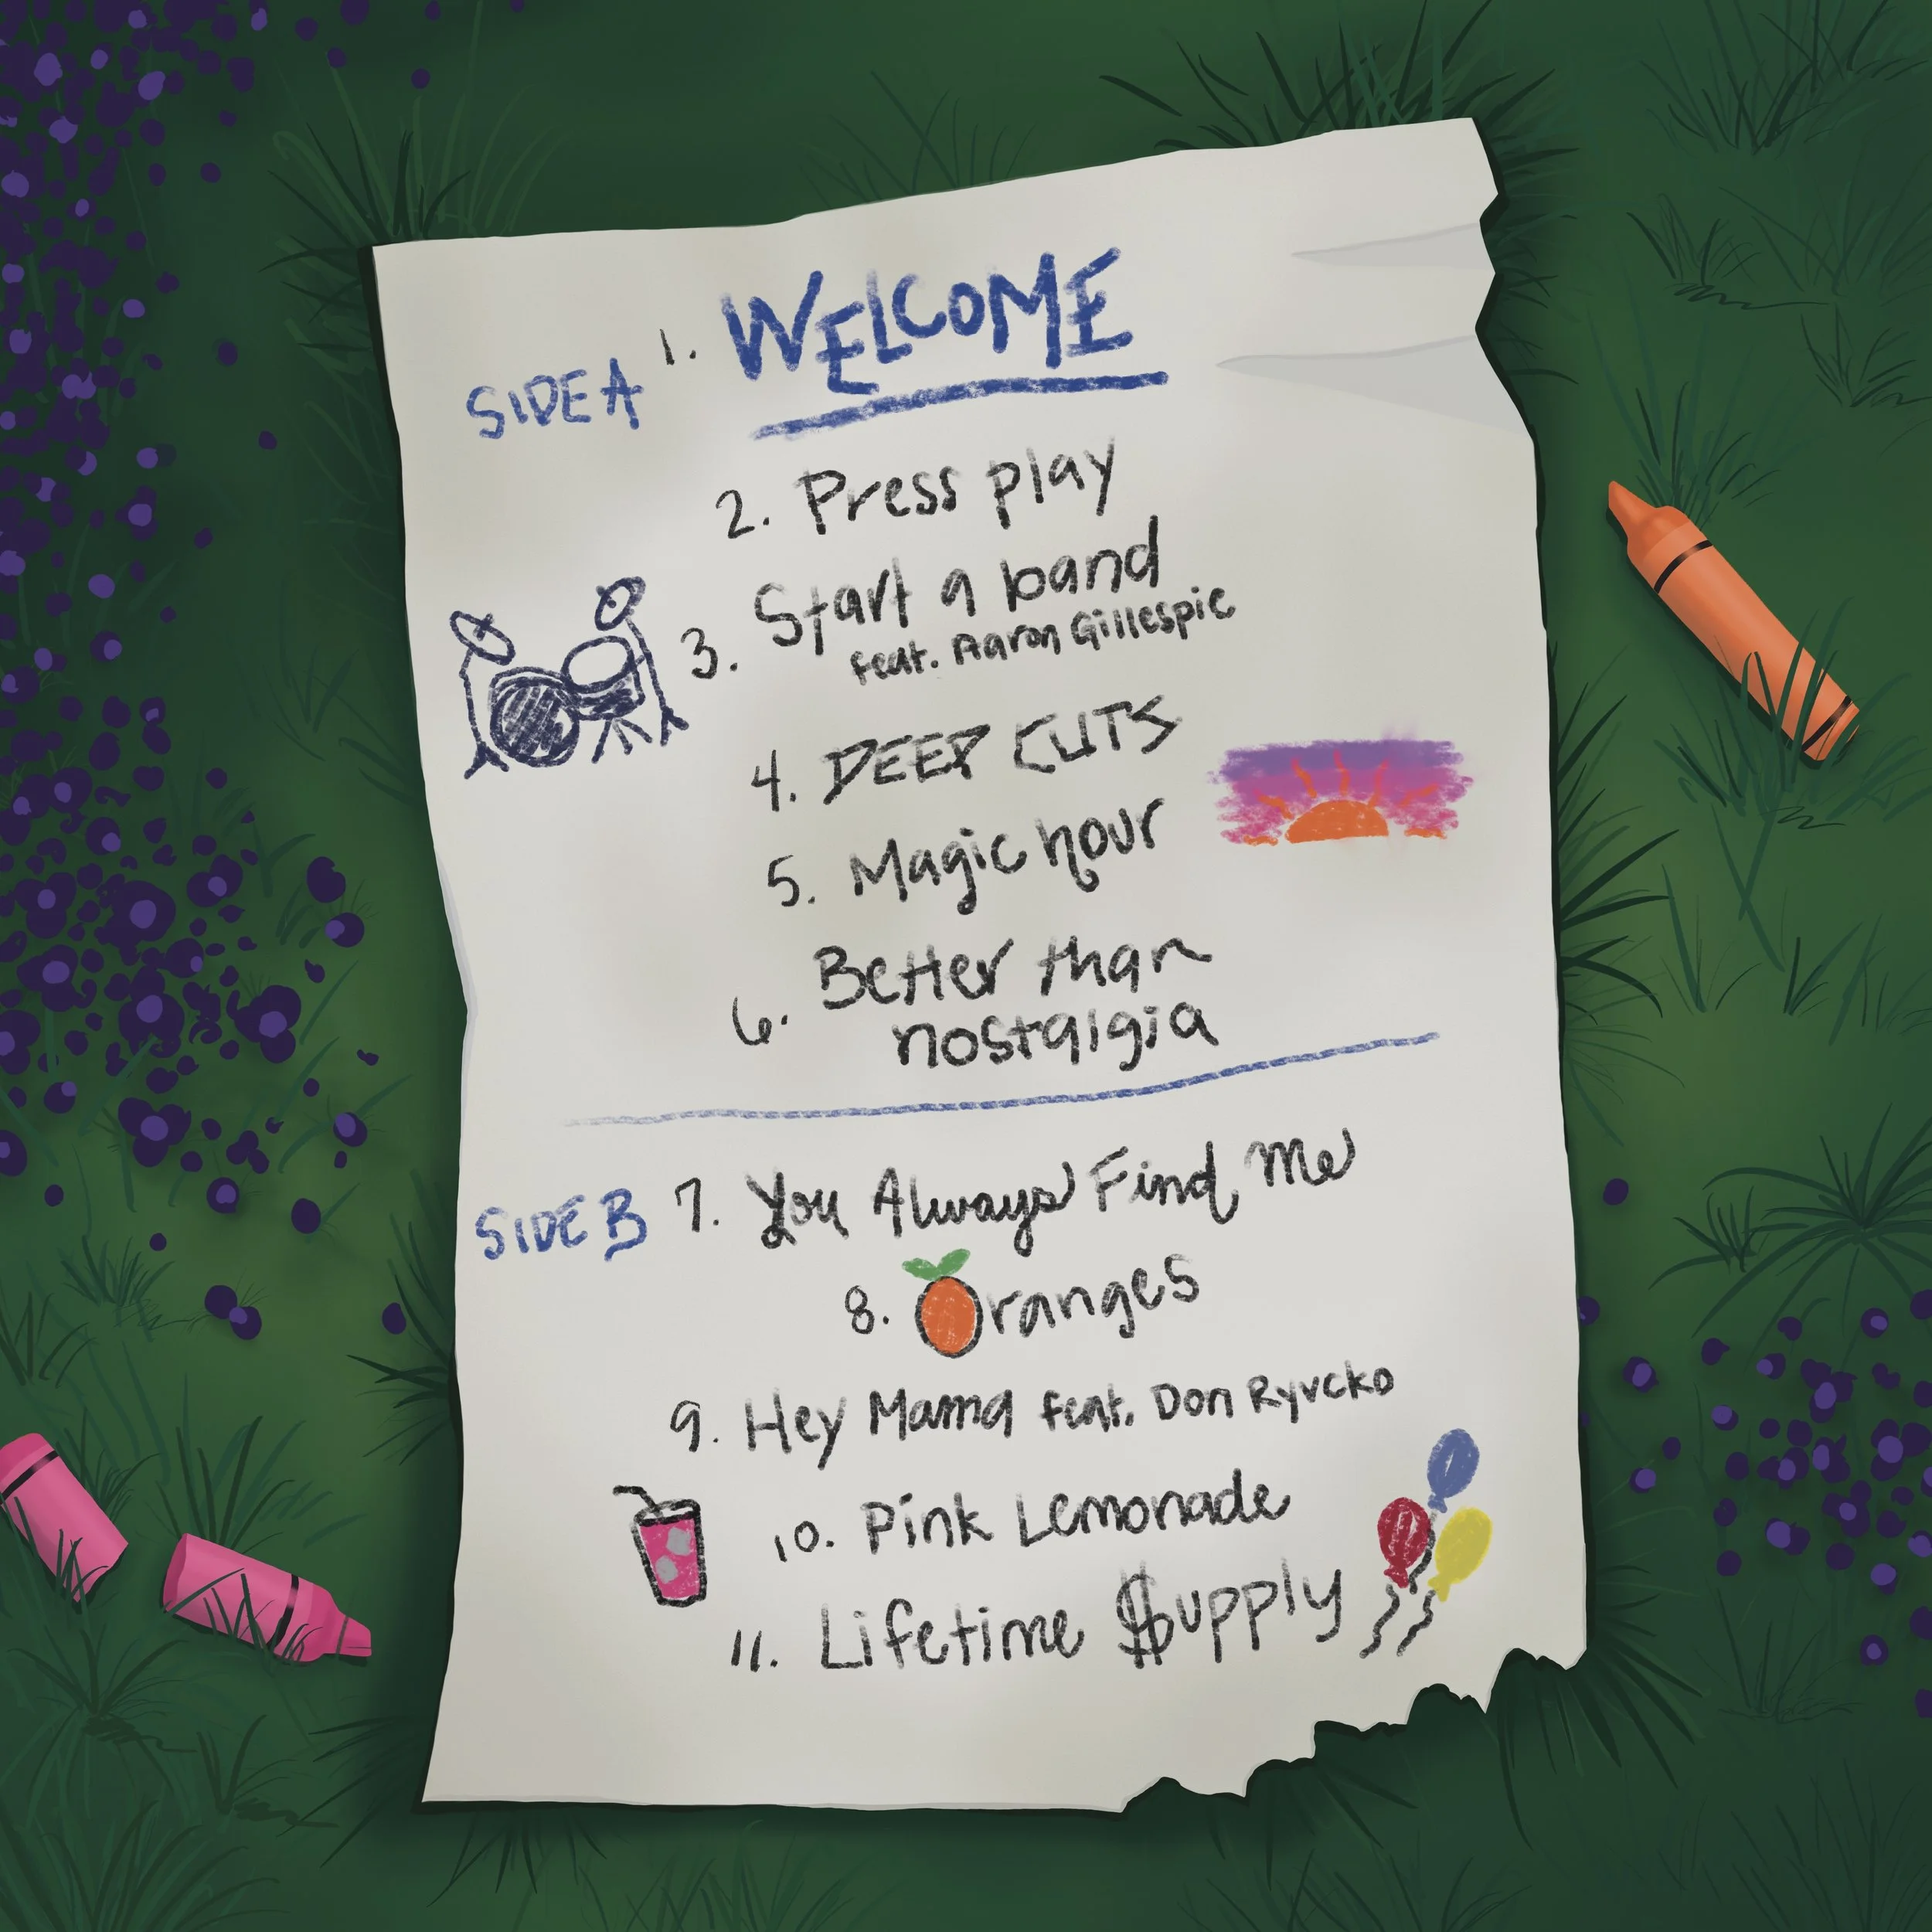 SIDE A 1. WELCOME
2. Press play
3. Start a band
feat. Aaron Gillespie
4. DEEP CUTS
5. Magic hour
6. Better than
nostalgia
SIDE B 7. You Always Find Me
8. Oranges
9. Hey Mama feat. Don Ryvcko
10. Pink Lemonade
11. Lifetime $upply